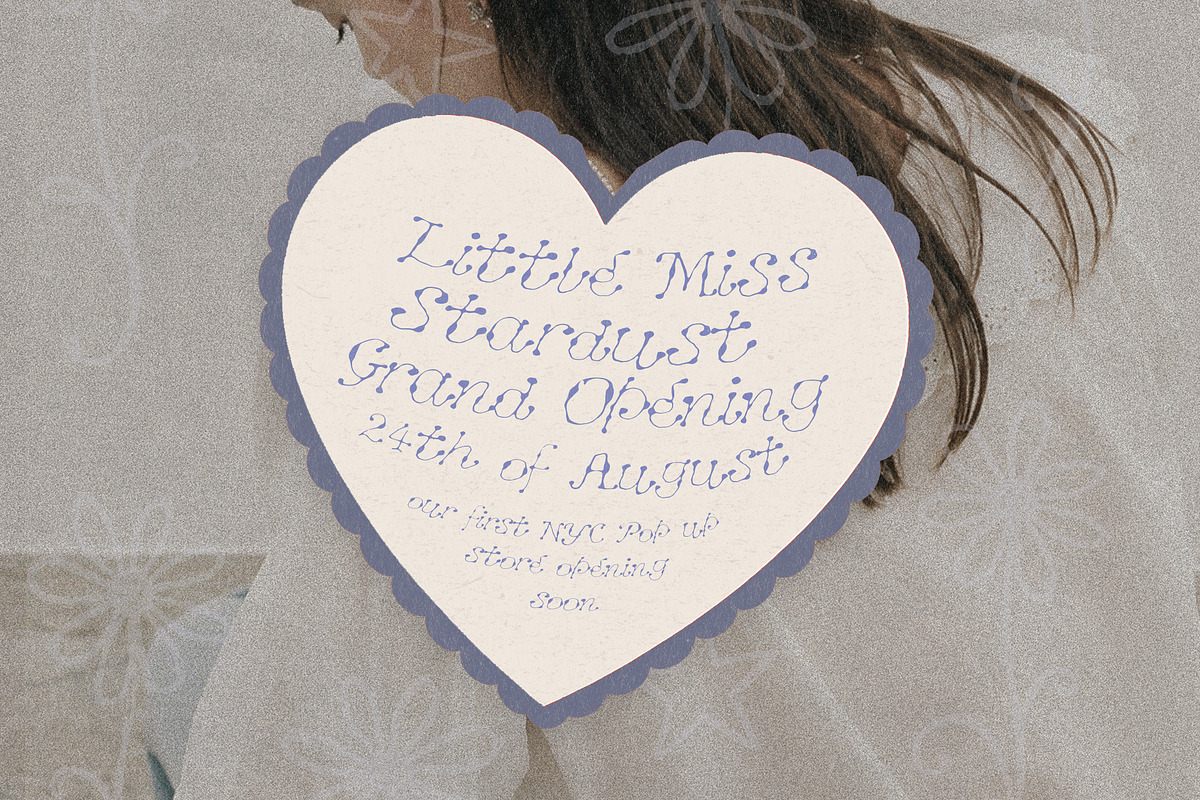 Little Miss
Stardust
Grand Opening
24th of August
our first NYC Pop up
store opening
soon